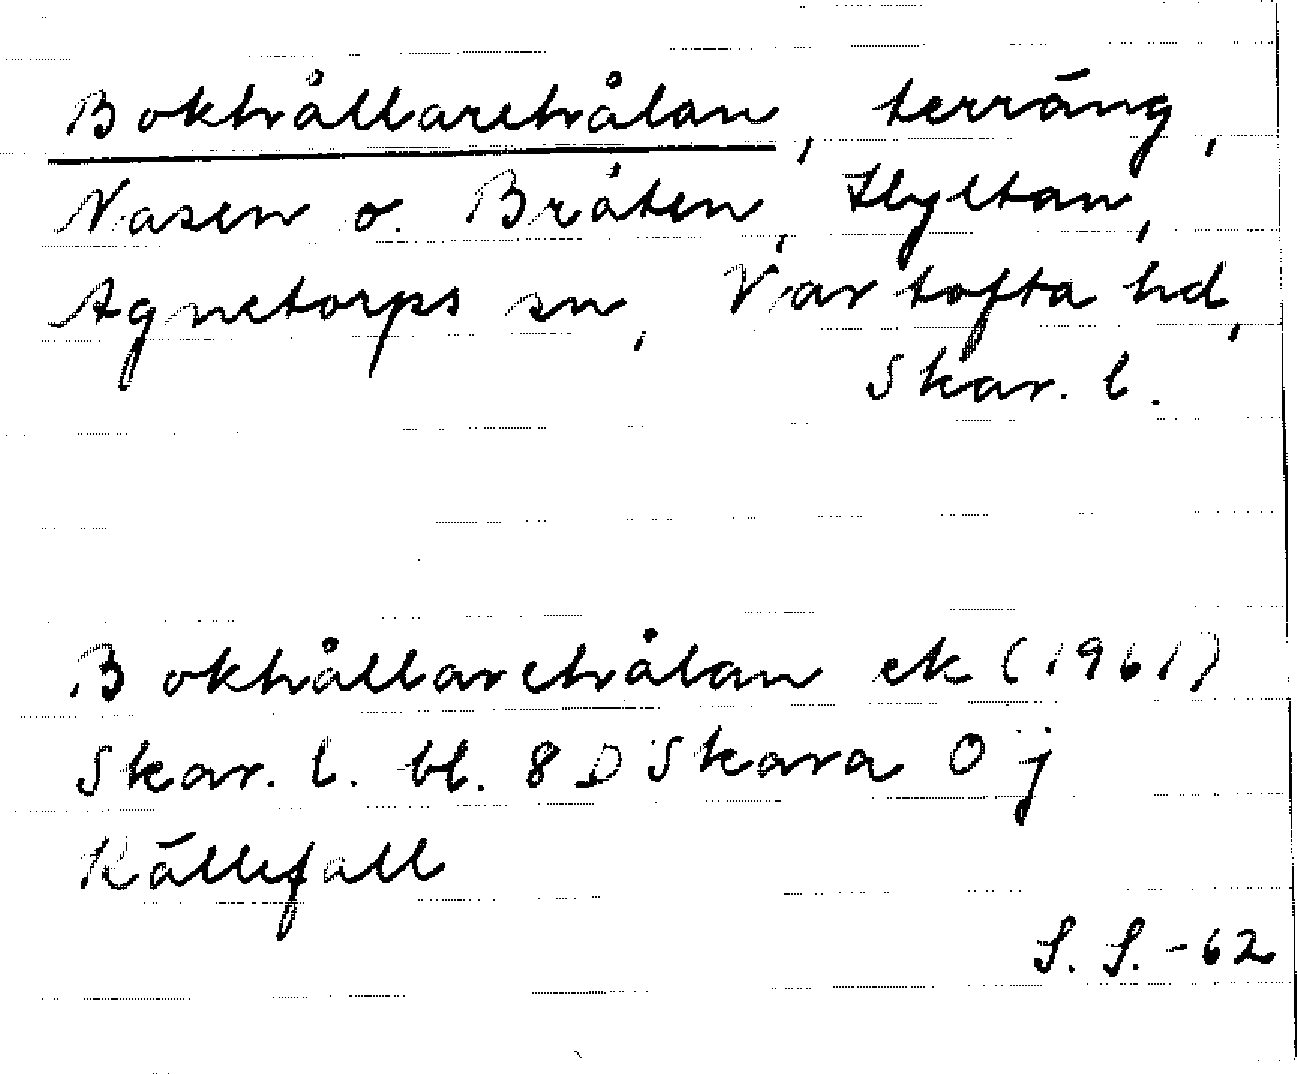 Bokhållarehålan, terräng,
Nasen o. Bråten, Hyltan,
Agnetorps sn, Vartofta hd,
Skar. l.
Bokhållarehålan ek (1961)
Skar. l. bl. 8 D Skara 0 j
Källefall
S. S. -62